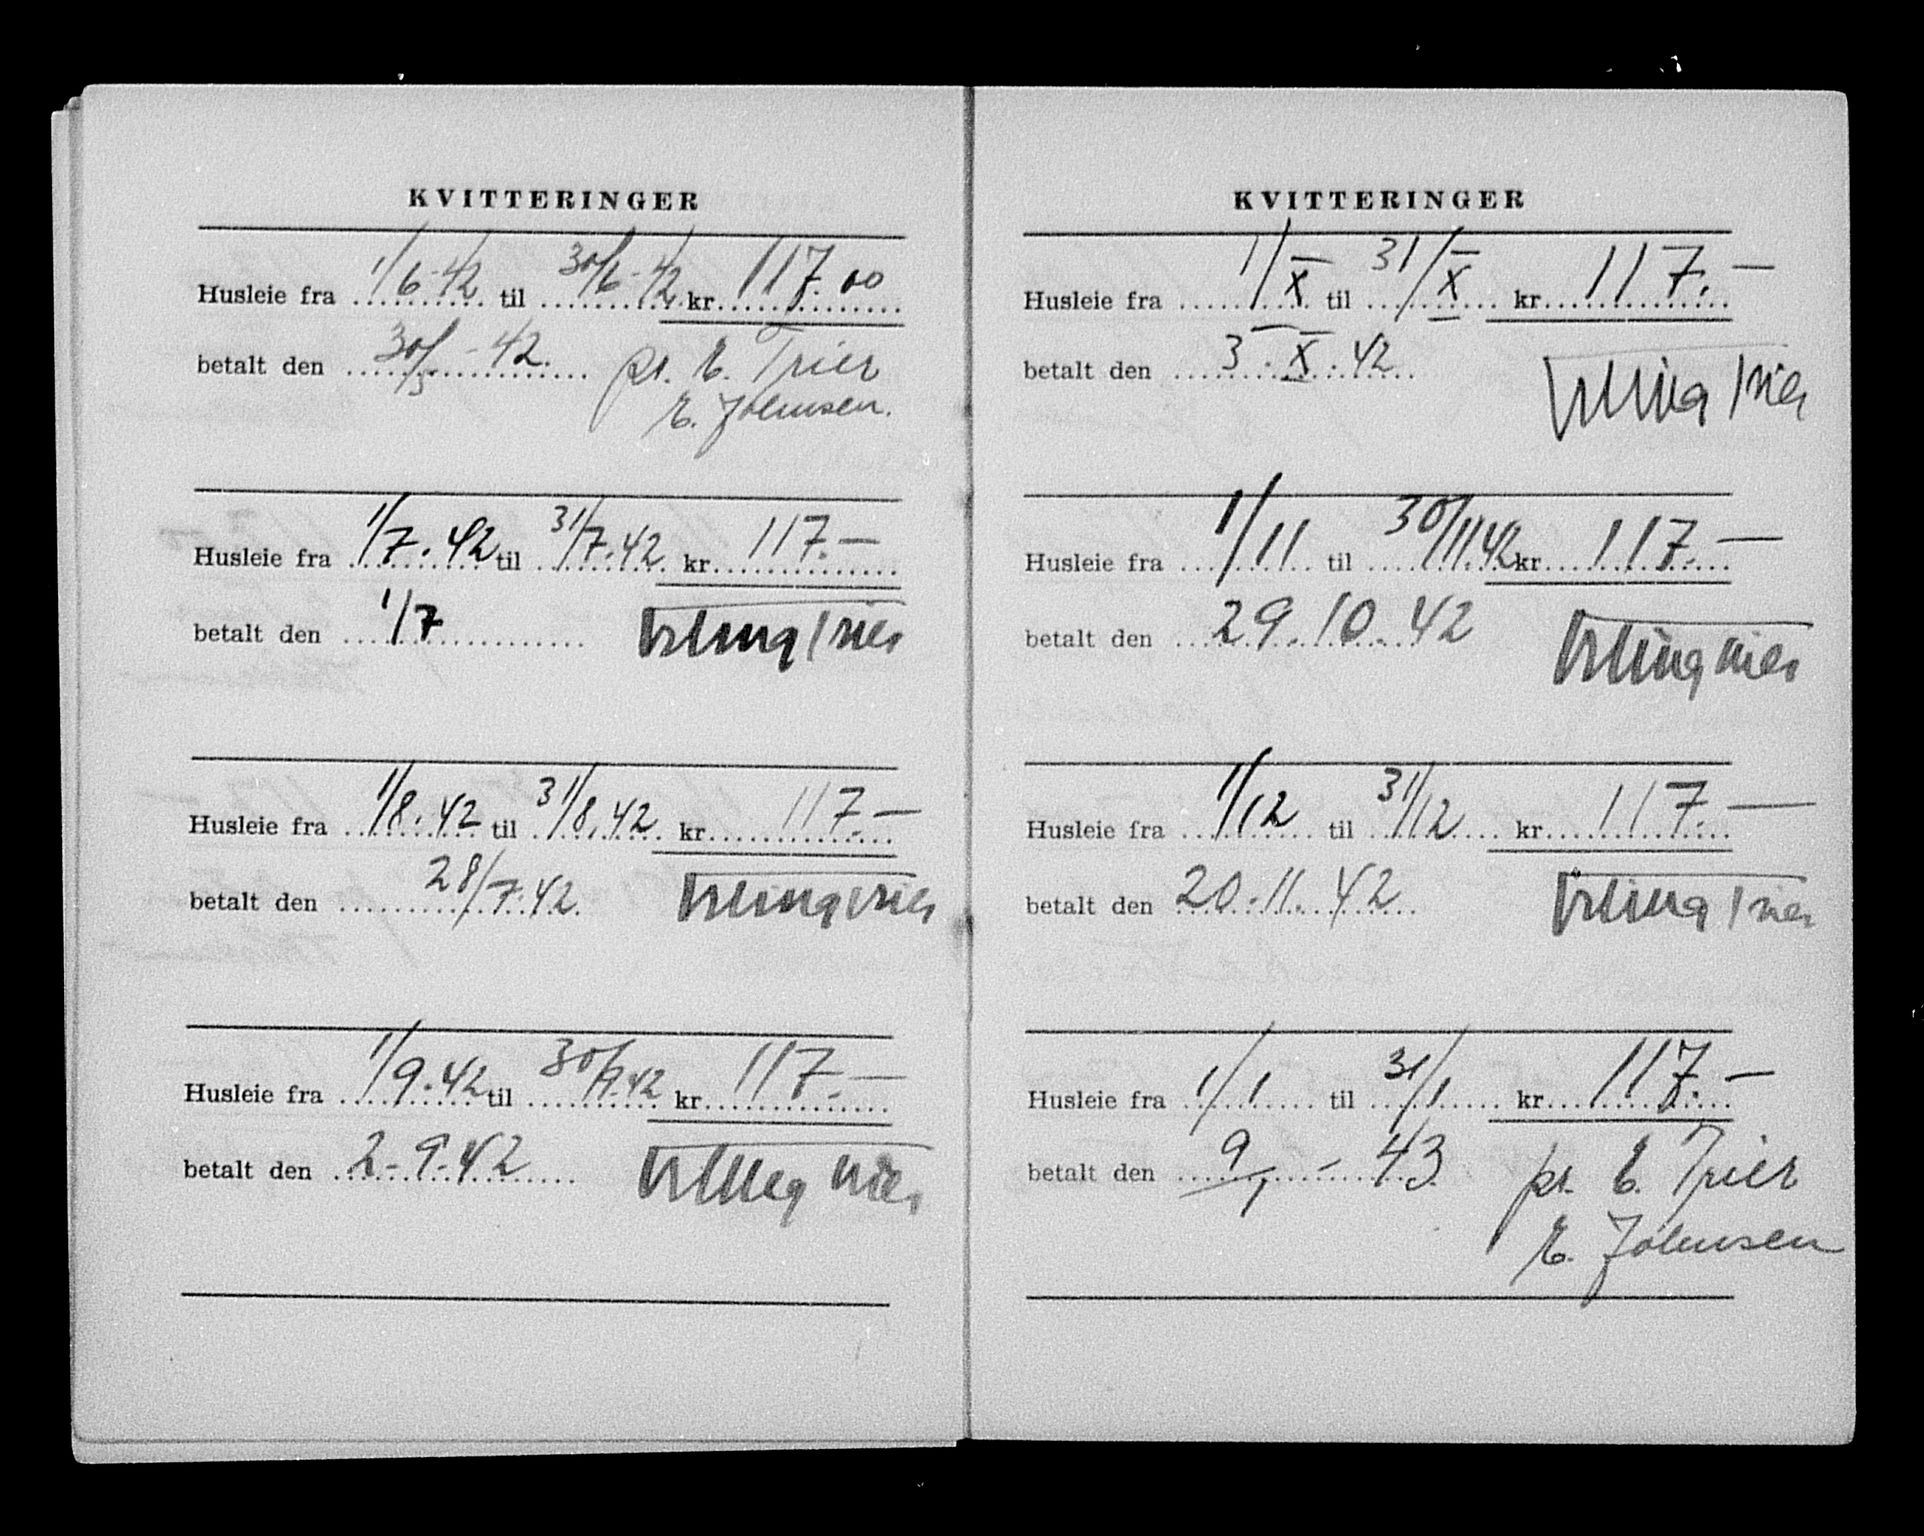 KVITTERINGER
Husleie fra 1/6-42 til 30/6-42 kr 117.00
betalt den 30/5-42. pr. E. Trier
E. Johnsen.
Husleie fra 1/7.42 til 31/7.42 kr 117.—
betalt den 1/7 Erling Trier
Husleie fra 1/8.42 til 31/8.42 kr 117.—
betalt den 28/7.42. Erling Trier
Husleie fra 1/9.42 til 30/9.42 kr 117.—
betalt den 2-9-42 Erling Trier
KVITTERINGER
Husleie fra 1/X til 31/X kr 117.—
betalt den 3.X.42 Erling Trier
Husleie fra 1/11 til 30/11.42 kr 117.—
betalt den 29.10.42 Erling Trier
Husleie fra 1/12 til 31/12 kr 117.—
betalt den 20.11.42 Erling Trier
Husleie fra 1/1 til 31/1 kr 117.—
betalt den 9/1-43 pr. E. Trier
E. Johnsen